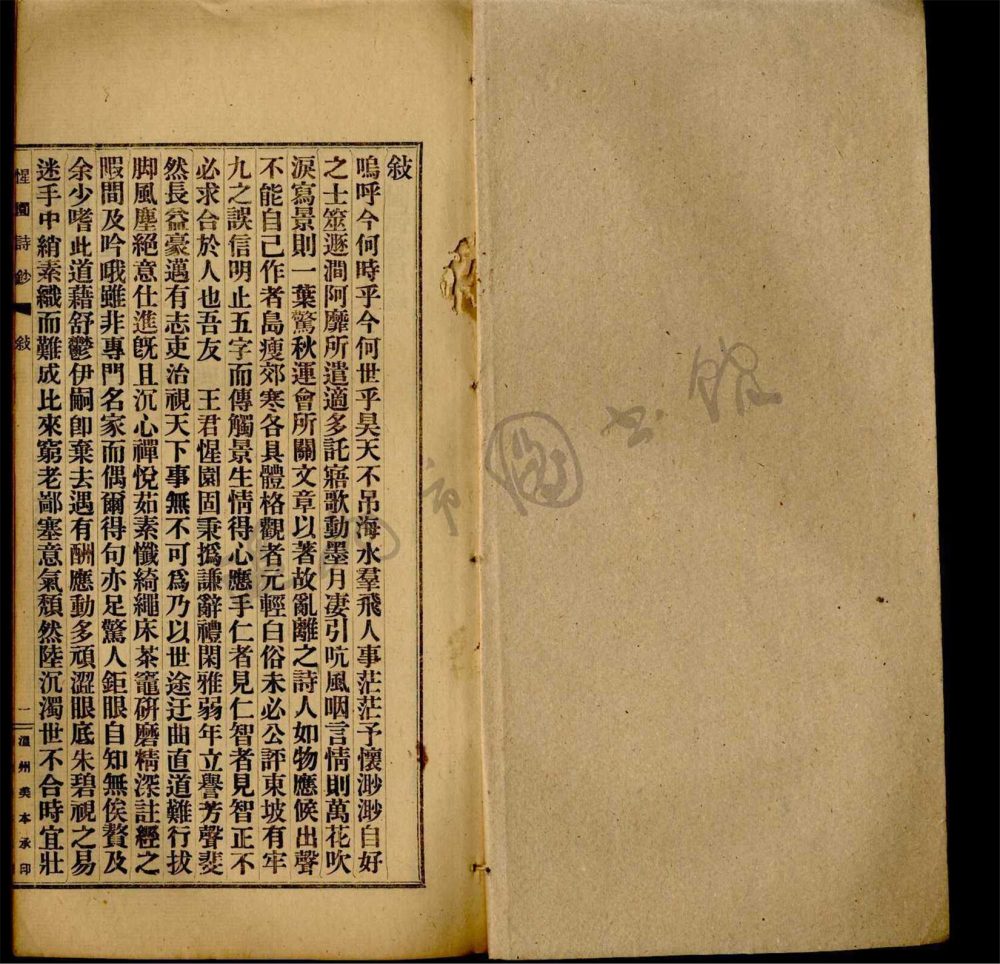 敍
嗚呼今何時乎今何世乎昊天不吊海水羣飛人事茫茫予懷渺渺自好
之士筮遯澗阿靡所遣適多託寤歌動墨月凄引吭風咽言情則萬花吹
淚寫景則一葉驚秋運會所關文章以著故亂離之詩人如物應候出聲
不能自己作者島瘦郊寒各具體格觀者元輕白俗未必公評東坡有牢
九之誤信明止五字而傳觸景生情得心應手仁者見仁智者見智正不
必求合於人也吾友 王君惺園固秉撝謙辭禮閑雅弱年立譽芳聲斐
然長益豪邁有志吏治視天下事無不可爲乃以世途迂曲直道難行拔
脚風塵絕意仕進旣且沉心禪悅茹素懺綺繩床茶竈硏磨精深註經之
暇間及吟哦雖非專門名家而偶爾得句亦足驚人鉅眼自知無俟贅及
余少嗜此道藉舒鬱伊嗣卽棄去遇有酬應動多頑澀眼底朱碧視之易
迷手中綃素織而難成比來窮老鄙塞意氣頹然陸沉濁世不合時宜壯
惺園詩鈔 敍 一 溫州美本承印
圖書館